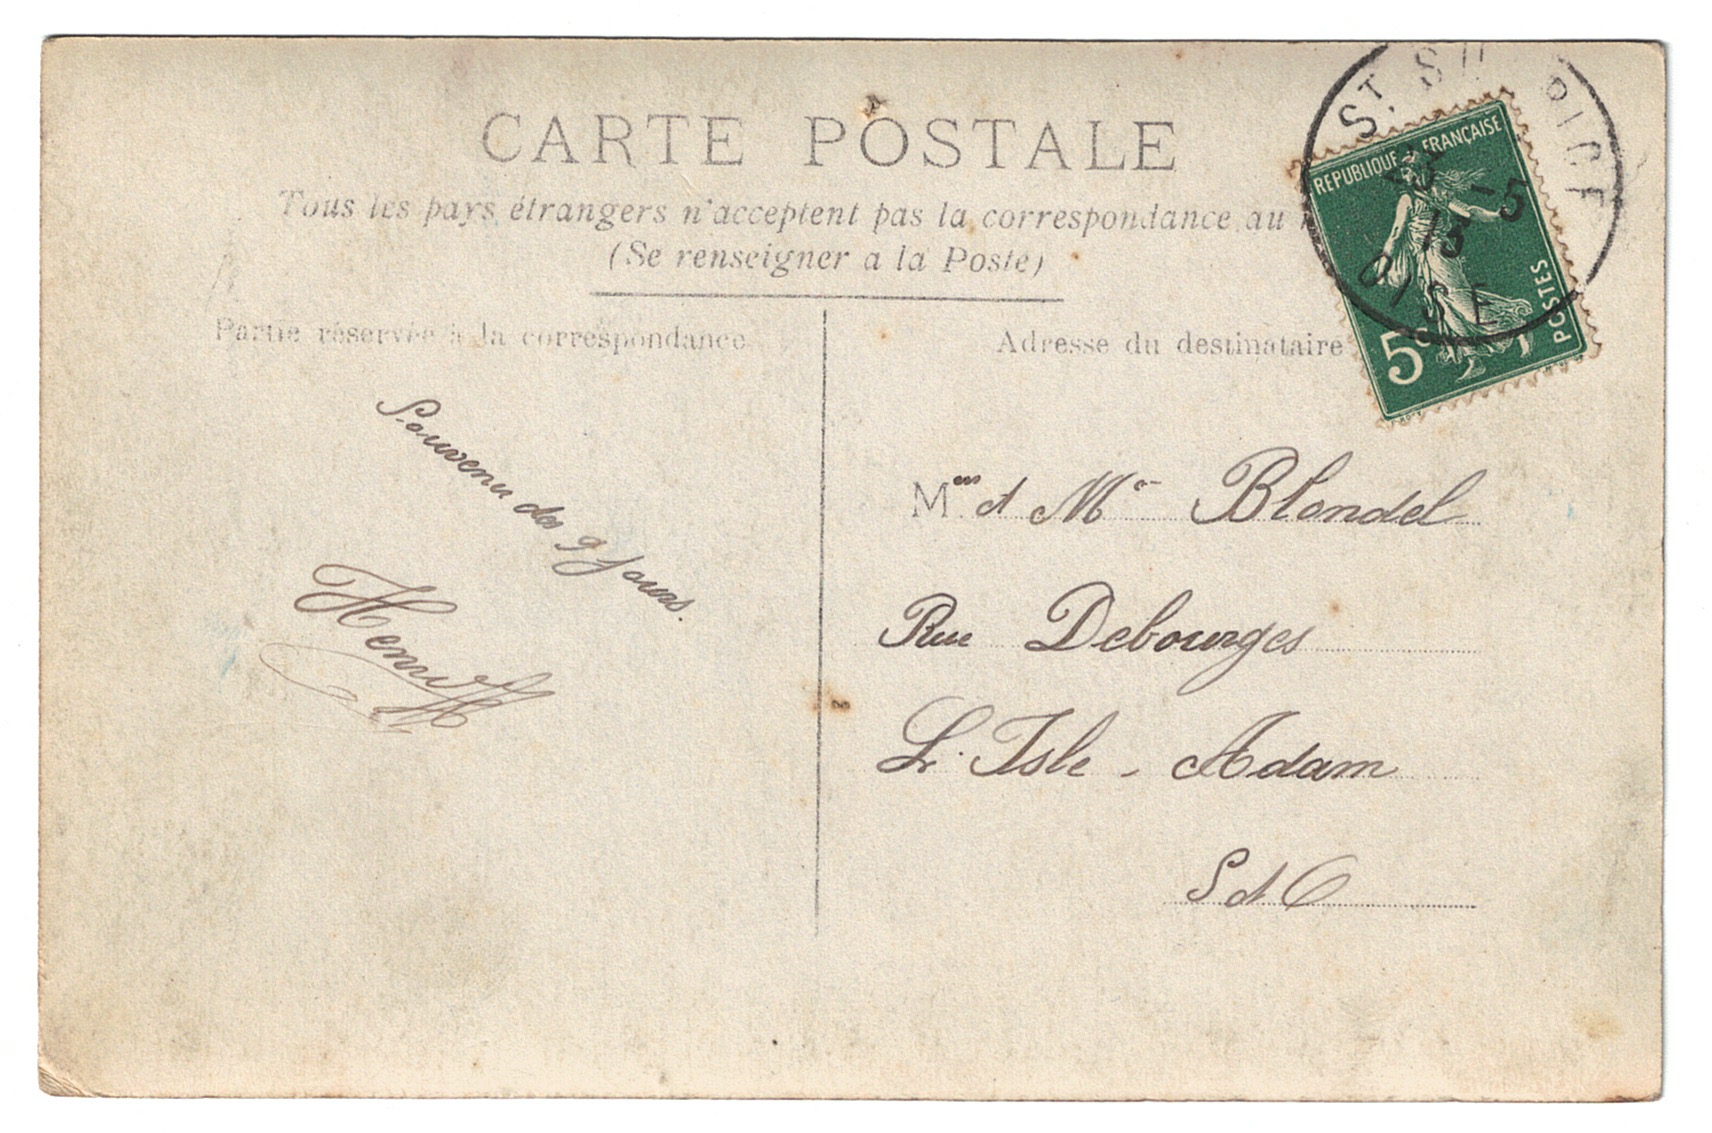 CARTE POSTALE
Tous les pays étrangers n'acceptent pas la correspondance au
(Se renseigner a la Poste)
Partie réservée à la correspondance
Adresse du destinataire
ST SU PICE
23 -5
13
OISE
REPUBLIQUE FRANÇAISE
5
POSTES
Souvenir des 9 Jours.
Henri
M et Me Blondel
Rue Debourges
L'Isle-Adam
S et O
3